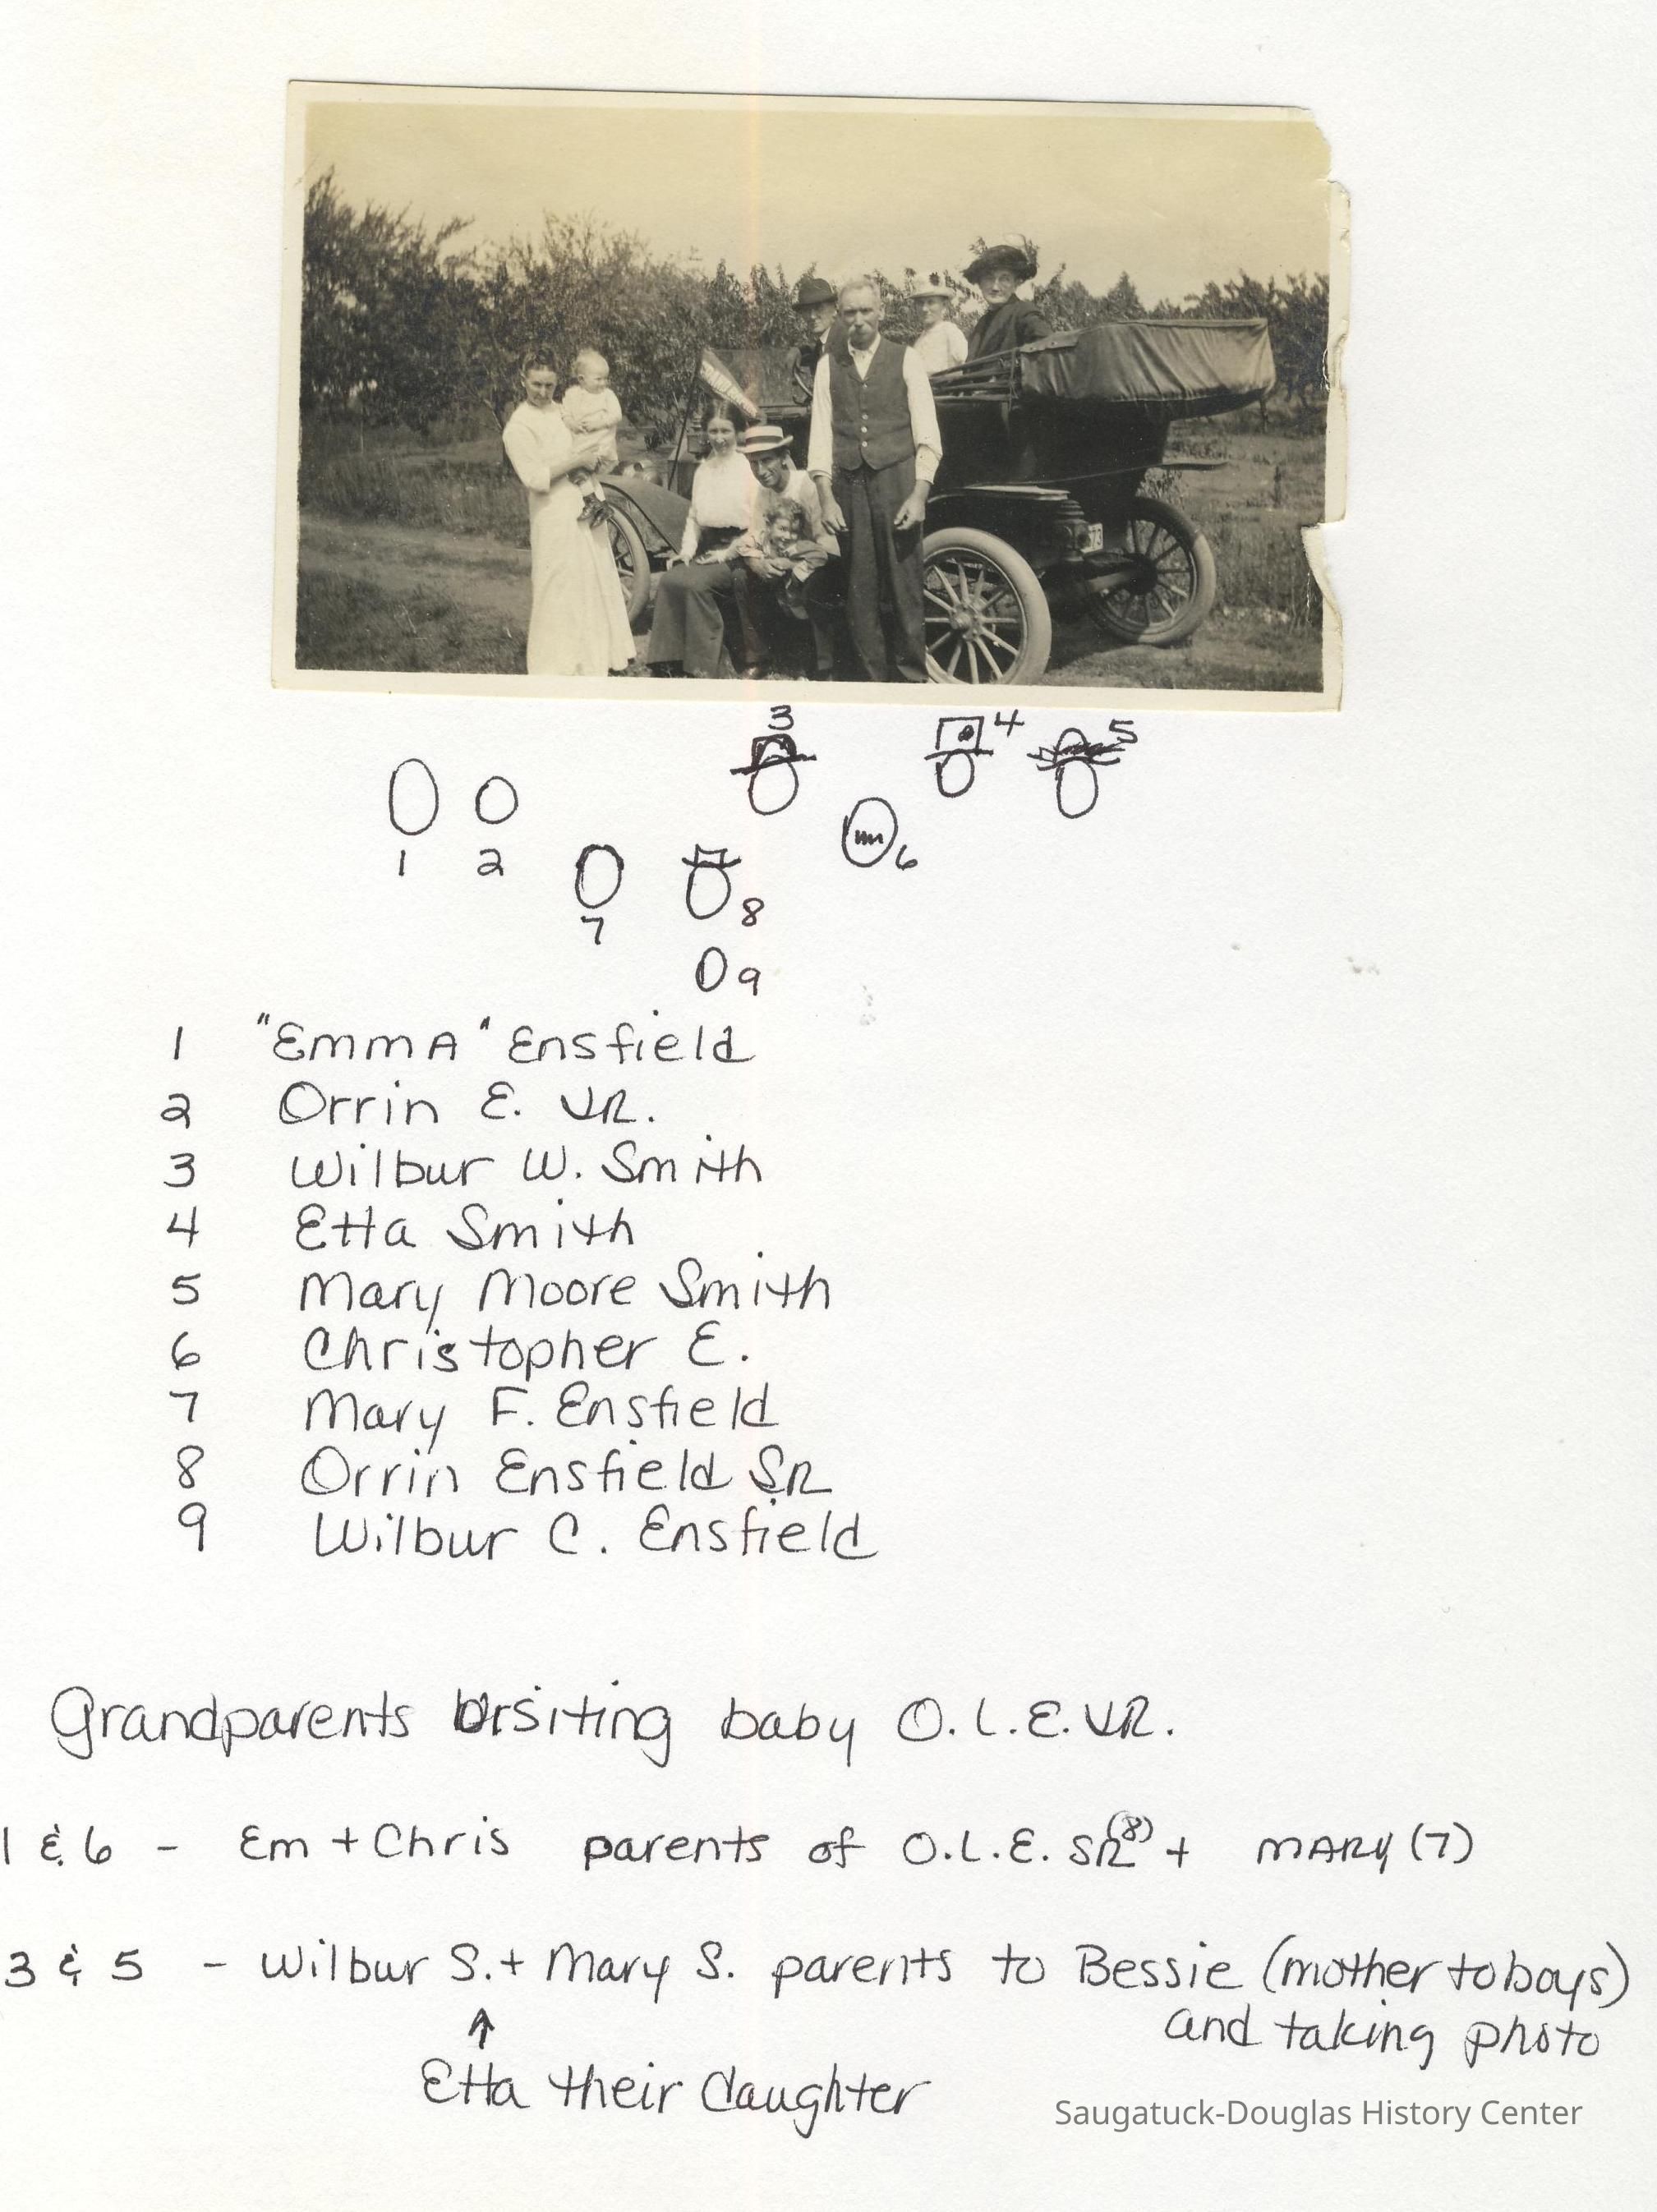 73
3
4
5
1
2
6
7
8
9
1 "EmmA" Ensfield
2 Orrin E. JR.
3 Wilbur W. Smith
4 Etta Smith
5 Mary Moore Smith
6 Christopher E.
7 Mary F. Ensfield
8 Orrin Ensfield SR
9 Wilbur C. Ensfield
Grandparents visiting baby O.L.E. JR.
1 & 6 - Em + Chris parents of O.L.E. SR (8) + MARY (7)
3 & 5 - Wilbur S. + Mary S. parents to Bessie (mother to boys)
and taking photo
↑
Etta their daughter
Saugatuck-Douglas History Center